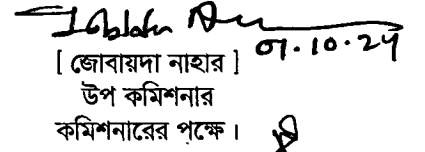 01.10.24
[ জোবায়দা নাহার ]
উপ কমিশনার
কমিশনারের পক্ষে।